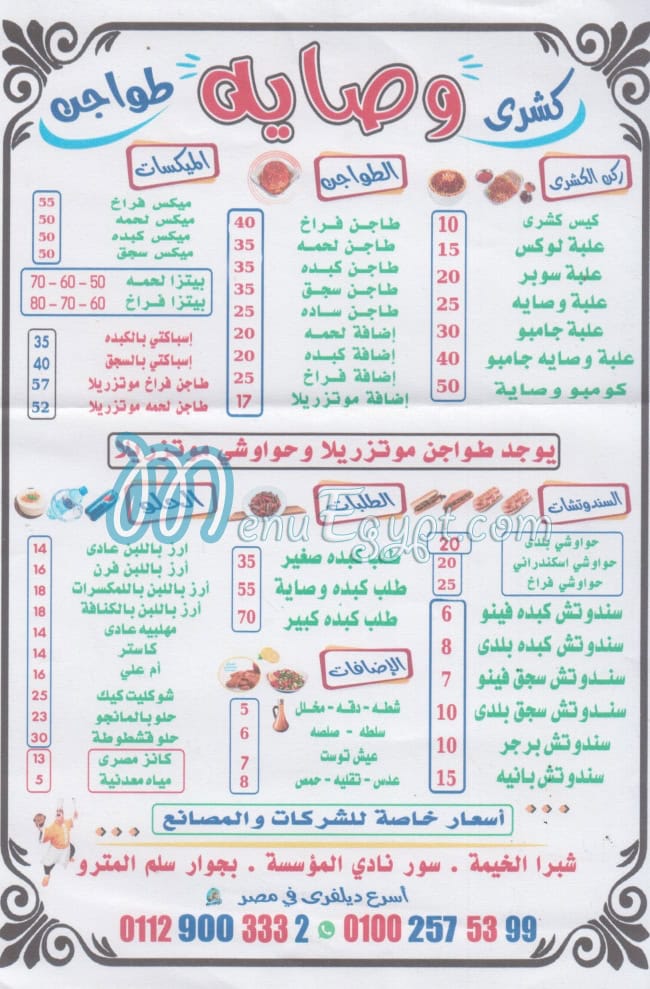 كشرى وصايه طواجن
ركن الكشرى
كيس كشرى 10
علبة لوكس 15
علبة سوبر 20
علبة وصايه 25
علبة جامبو 30
علبة وصايه جامبو 40
كومبو وصاية 50
الطواجن
طاجن فراخ 40
طاجن لحمه 35
طاجن كبده 35
طاجن سجق 35
طاجن ساده 25
إضافة لحمه 20
إضافة كبده 20
إضافة فراخ 25
إضافة موتزريلا 17
الميكسات
ميكس فراخ 55
ميكس لحمه 50
ميكس كبده 50
ميكس سجق 50
بيتزا لحمه 50 - 60 - 70
بيتزا فراخ 60 - 70 - 80
إسباكتي بالكبده 35
إسباكتي بالسجق 40
طاجن فراخ موتزريلا 57
طاجن لحمه موتزريلا 52
يوجد طواجن موتزريلا وحواوشي موتزريلا
السندوتشات
حواوشي بلدى 20
حواوشي اسكندراني 20
حواوشي فراخ 25
سندوتش كبده فينو 6
سندوتش كبده بلدى 8
سندوتش سجق فينو 7
سندوتش سجق بلدى 10
سندوتش برجر 10
سندوتش بانيه 15
الطلبات
طلب كبده صغير 35
طلب كبده وصاية 55
طلب كبده كبير 70
الإضافات
شطه - دقه - مخلل 5
سلطه - صلصه 6
عيش توست 7
عدس - تقليه - حمص 8
الحلو
أرز باللبن عادى 14
أرز باللبن فرن 16
أرز باللبن بالمكسرات 18
أرز باللبن بالكنافة 18
مهلبيه عادى 14
كاستر 14
أم علي 16
شوكليت كيك 25
حلو بالمانجو 23
حلو قشطوطة 30
كانز مصرى 13
مياه معدنية 5
MenuEgypt.com
أسعار خاصة للشركات والمصانع
شبرا الخيمة . سور نادي المؤسسة . بجوار سلم المترو
أسرع ديلفرى في مصر
0112 900 333 2 0100 257 53 99